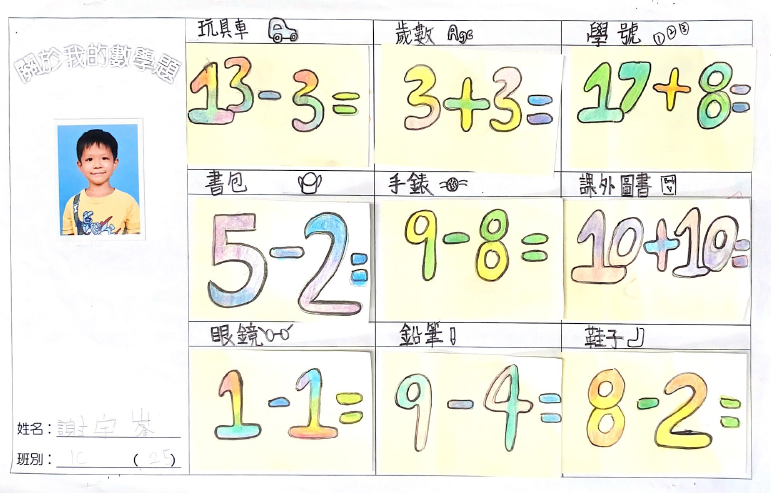 關於我的數學題
玩具車
13-3=
歲數 Age
3+3=
學號 ①②③
17+8=
書包
5-2=
手錶
9-8=
課外圖書
10+10=
眼鏡
1-1=
鉛筆
9-4=
鞋子
8-2=
姓名：謝宇峯
班別：1C (25)